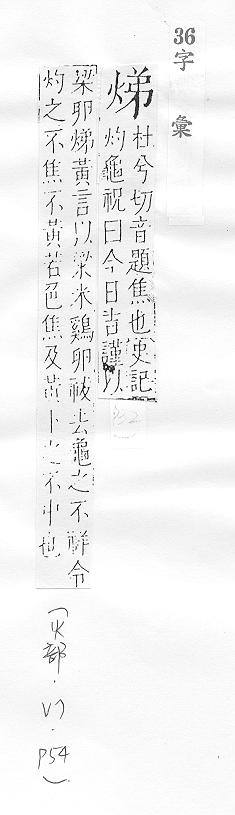 36字彙
㷑
杜兮切音題焦也史記
灼龜祝曰今日吉謹以
粱卵㷑黃言以粱米鷄卵祓去龜之不祥令
灼之不焦不黃若色焦及黃卜之不中也
(火部.V7.P54)